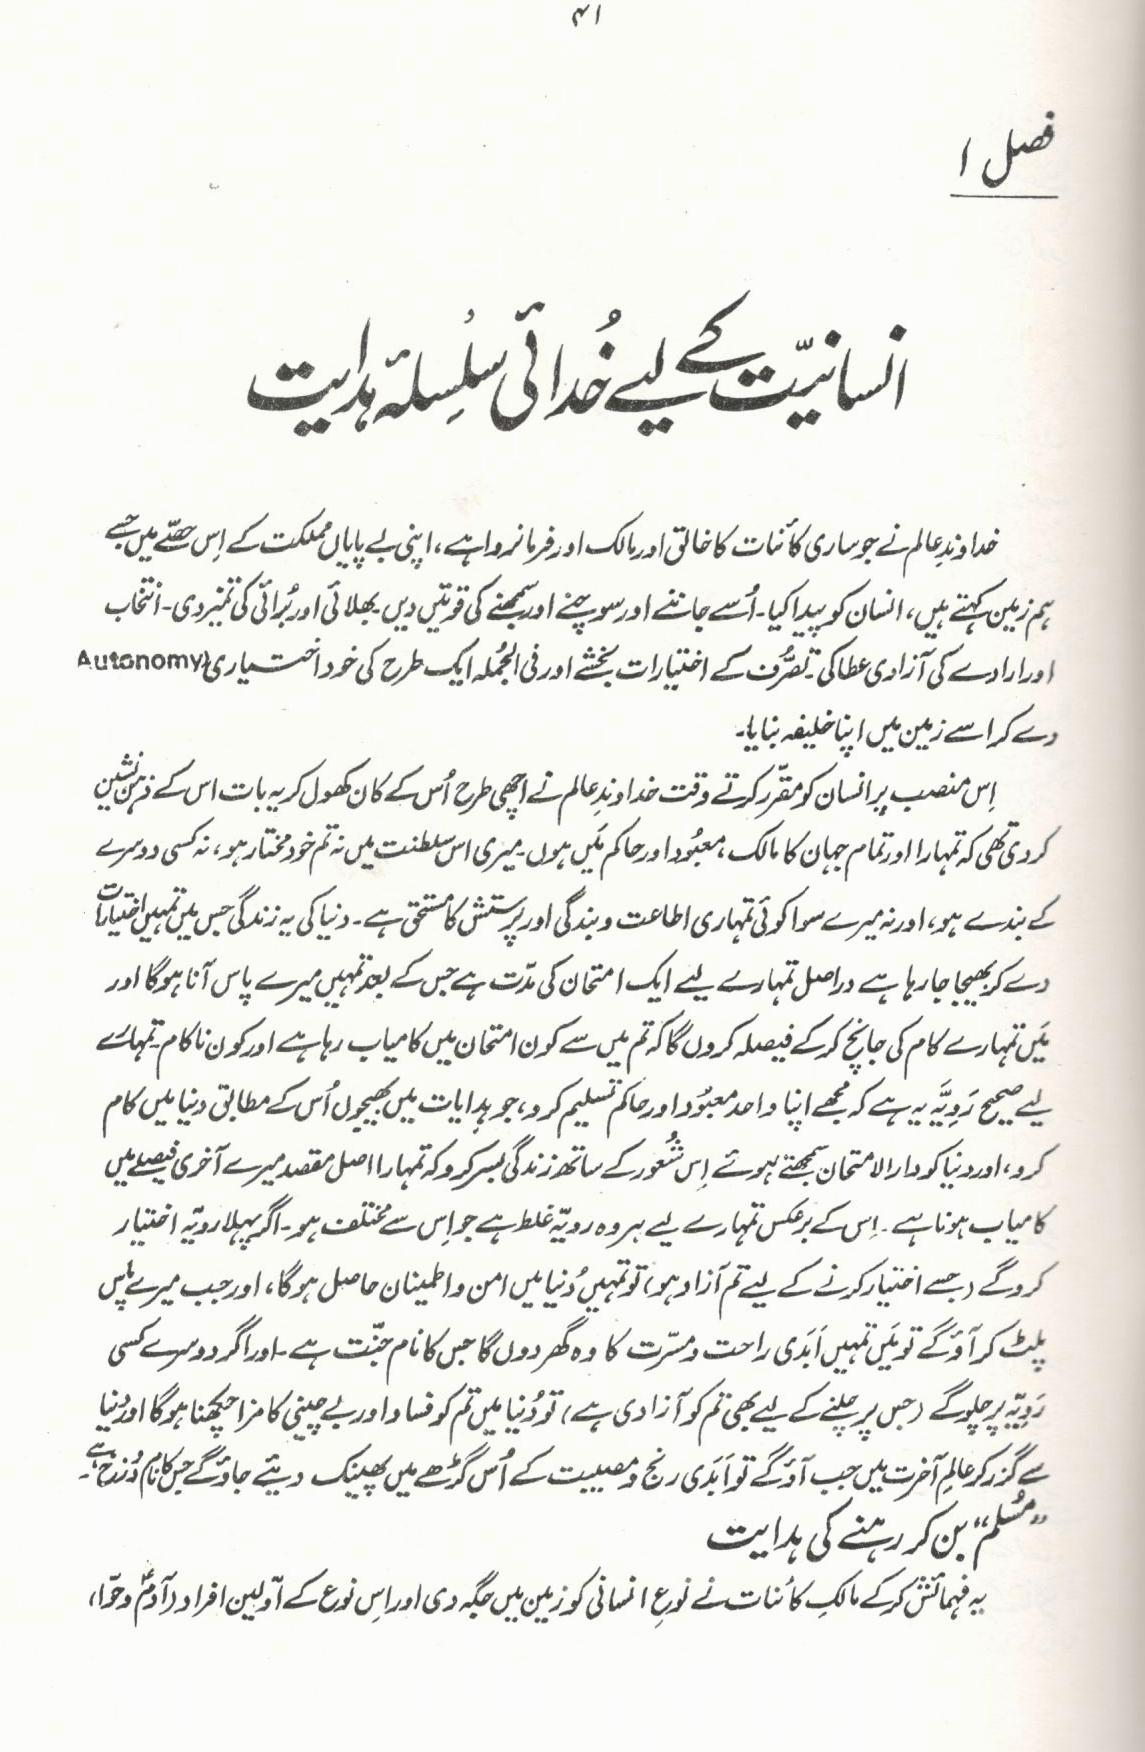 ۴۱
فصل ۱
انسانیّت کے لیے خُدائی سلسِلۂ ہدایت
خداوندِ عالم نے جو ساری کائنات کا خالق اور مالک اور فرمانروا ہے، اپنی بے پایاں مملکت کے اِس حصّے میں جسے
ہم زمین کہتے ہیں، انسان کو پیدا کیا۔ اُسے جاننے اور سوچنے اور سمجھنے کی قوتیں دیں۔ بھلائی اور بُرائی کی تمیز دی۔ انتخاب
اور ارادے کی آزادی عطا کی۔ تصرُّف کے اختیارات بخشے اور فی الجُملہ ایک طرح کی خود اختیاری (Autonomy)
دے کر اسے زمین میں اپنا خلیفہ بنایا۔
اِس منصب پر انسان کو مقرّر کرتے وقت خداوندِ عالم نے اچھی طرح اُس کے کان کھول کر یہ بات اس کے ذہن نشین
کر دی تھی کہ تمہارا اور تمام جہان کا مالک، معبُود اور حاکم مَیں ہوں۔ میری اس سلطنت میں نہ تم خود مختار ہو، نہ کسی دوسرے
کے بندے ہو، اور نہ میرے سوا کوئی تمہاری اطاعت و بندگی اور پرستش کا مستحق ہے۔ دنیا کی یہ زندگی جس میں تمہیں اختیارات
دے کر بھیجا جا رہا ہے دراصل تمہارے لیے ایک امتحان کی مدّت ہے جس کے بعد تمہیں میرے پاس آنا ہوگا اور
مَیں تمہارے کام کی جانچ کر کے فیصلہ کروں گا کہ تم میں سے کون امتحان میں کامیاب رہا ہے اور کون ناکام۔ تمہارے
لیے صحیح رَوِیَّہ یہ ہے کہ مجھے اپنا واحد معبُود اور حاکم تسلیم کرو، جو ہدایات میں بھیجوں اُس کے مطابق دنیا میں کام
کرو، اور دنیا کو دارالامتحان سمجھتے ہوئے اِس شُعور کے ساتھ زندگی بسر کرو کہ تمہارا اصل مقصد میرے آخری فیصلے میں
کامیاب ہونا ہے۔ اِس کے برعکس تمہارے لیے ہر وہ رویّہ غلط ہے جو اِس سے مختلف ہو۔ اگر پہلا رویّہ اختیار
کرو گے (جسے اختیار کرنے کے لیے تم آزاد ہو) تو تمہیں دُنیا میں امن و اطمینان حاصل ہوگا، اور جب میرے پاس
پلٹ کر آؤ گے تو مَیں تمہیں اَبَدی راحت و مسرّت کا وہ گھر دوں گا جس کا نام جنّت ہے۔ اور اگر دوسرے کسی
رَوِیّہ پر چلو گے (جس پر چلنے کے لیے بھی تم کو آزادی ہے) تو دُنیا میں تم کو فساد اور بے چینی کا مزا چکھنا ہوگا اور دنیا
سے گزر کر عالمِ آخرت میں جب آؤ گے تو اَبَدی رنج و مصیبت کے اُس گڑھے میں پھینک دیئے جاؤ گے جس کا نام دُوزخ ہے۔
”مُسلم“ بن کر رہنے کی ہدایت
یہ فہمائش کر کے مالکِ کائنات نے نوعِ انسانی کو زمین میں جگہ دی اور اِس نوع کے اوّلین افراد (آدمؑ و حوّا)